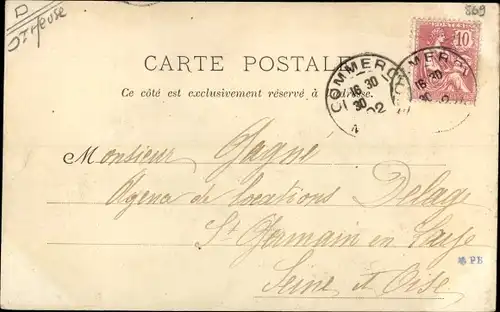 D
Meuse
869
10
CARTE POSTALE
Ce côté est exclusivement réservé à l'adresse.
COMMERCY
16 30
30
02
Monsieur Gagné
Agence de Locations Delage
St Germain en Laye
Seine et Oise
PE